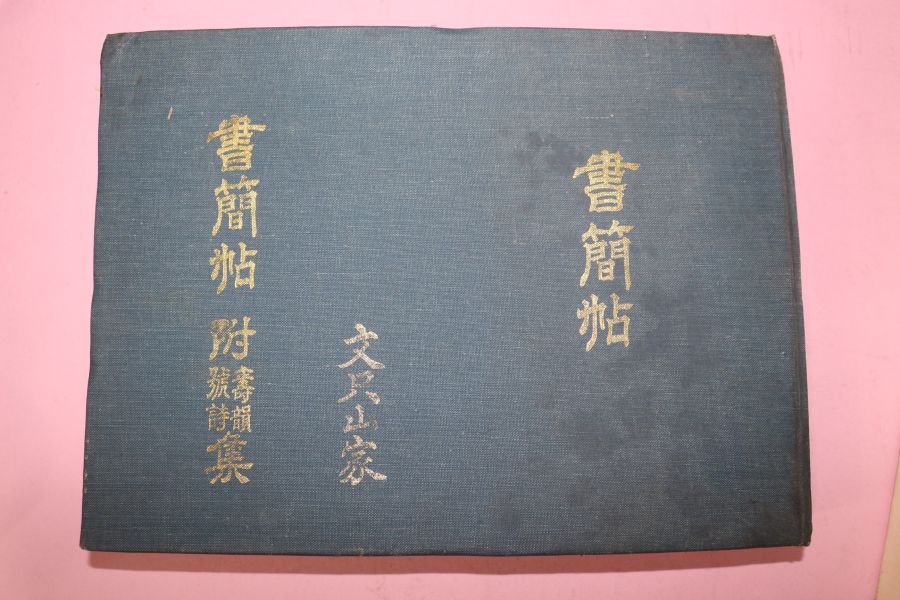 書簡帖
文只山家
書簡帖 附 壽韻號詩 集